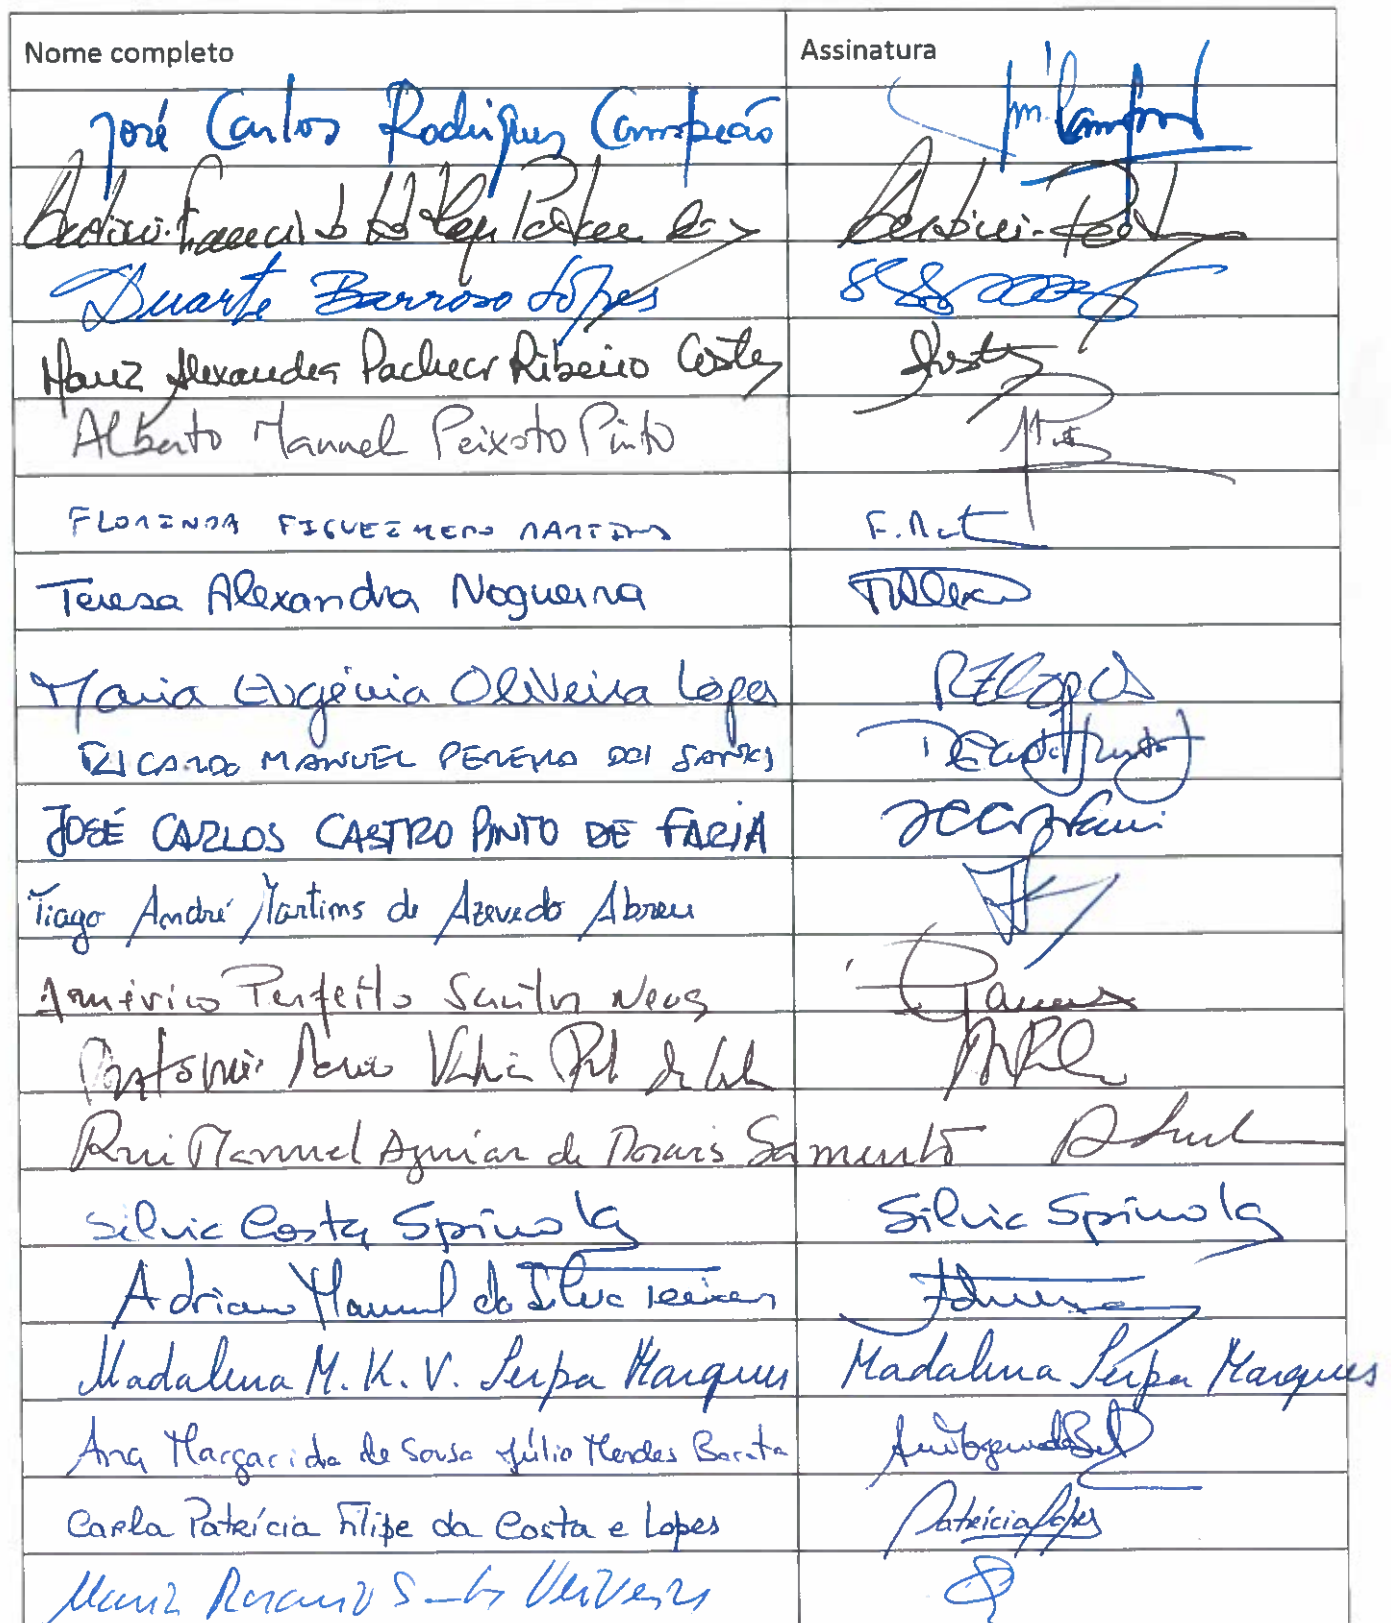 Nome completo Assinatura
José Carlos Rodrigues Campeão
Francisco
Duarte Barroso Lopes
Maria Alexandra Pacheco Ribeiro Costa Costa
Alberto Manuel Peixoto Pinto
FLORINDA FIGUEIREDO MARTINS F. Mat
Teresa Alexandra Nogueira
Maria Eugénia Oliveira Lopes MELopes
RICARDO MANUEL PEREIRA DOS SANTOS
JOSÉ CARLOS CASTRO PINTO DE FARIA
Tiago André Martins de Azevedo Abreu
Américo Perfeito Santos Neves
António
Rui Manuel Aguiar de Morais Sarmento
Silvia Costa Spínola Silvia Spínola
Adriano Manuel da Silva Teixeira
Madalena M. K. V. Serpa Marques Madalena Serpa Marques
Ana Margarida de Sousa Júlio Mendes Barata
Carla Patrícia Filipe da Costa e Lopes Patrícia Lopes
Maria Rosario Santos Oliveira